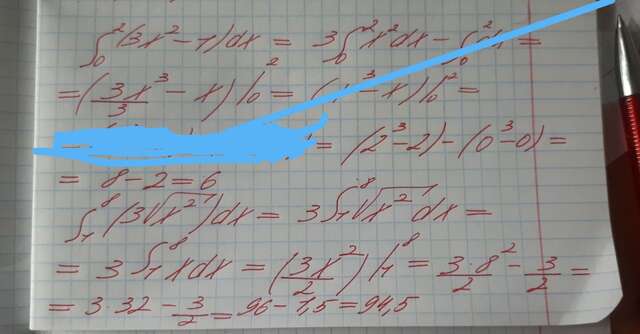 ∫₀²(3x²-1)dx = 3∫₀²x²dx - ∫₀²dx =
= (3x³/3 - x)|₀² = (x³-x)|₀² =
= (2³-2)-(0³-0) =
= 8-2=6
∫₁⁸(3√x²)dx = 3∫₁⁸√x² dx =
= 3∫₁⁸xdx = (3x²/2)|₁⁸ = 3·8²/2 - 3/2 =
= 3·32 - 3/2 = 96-1,5=94,5